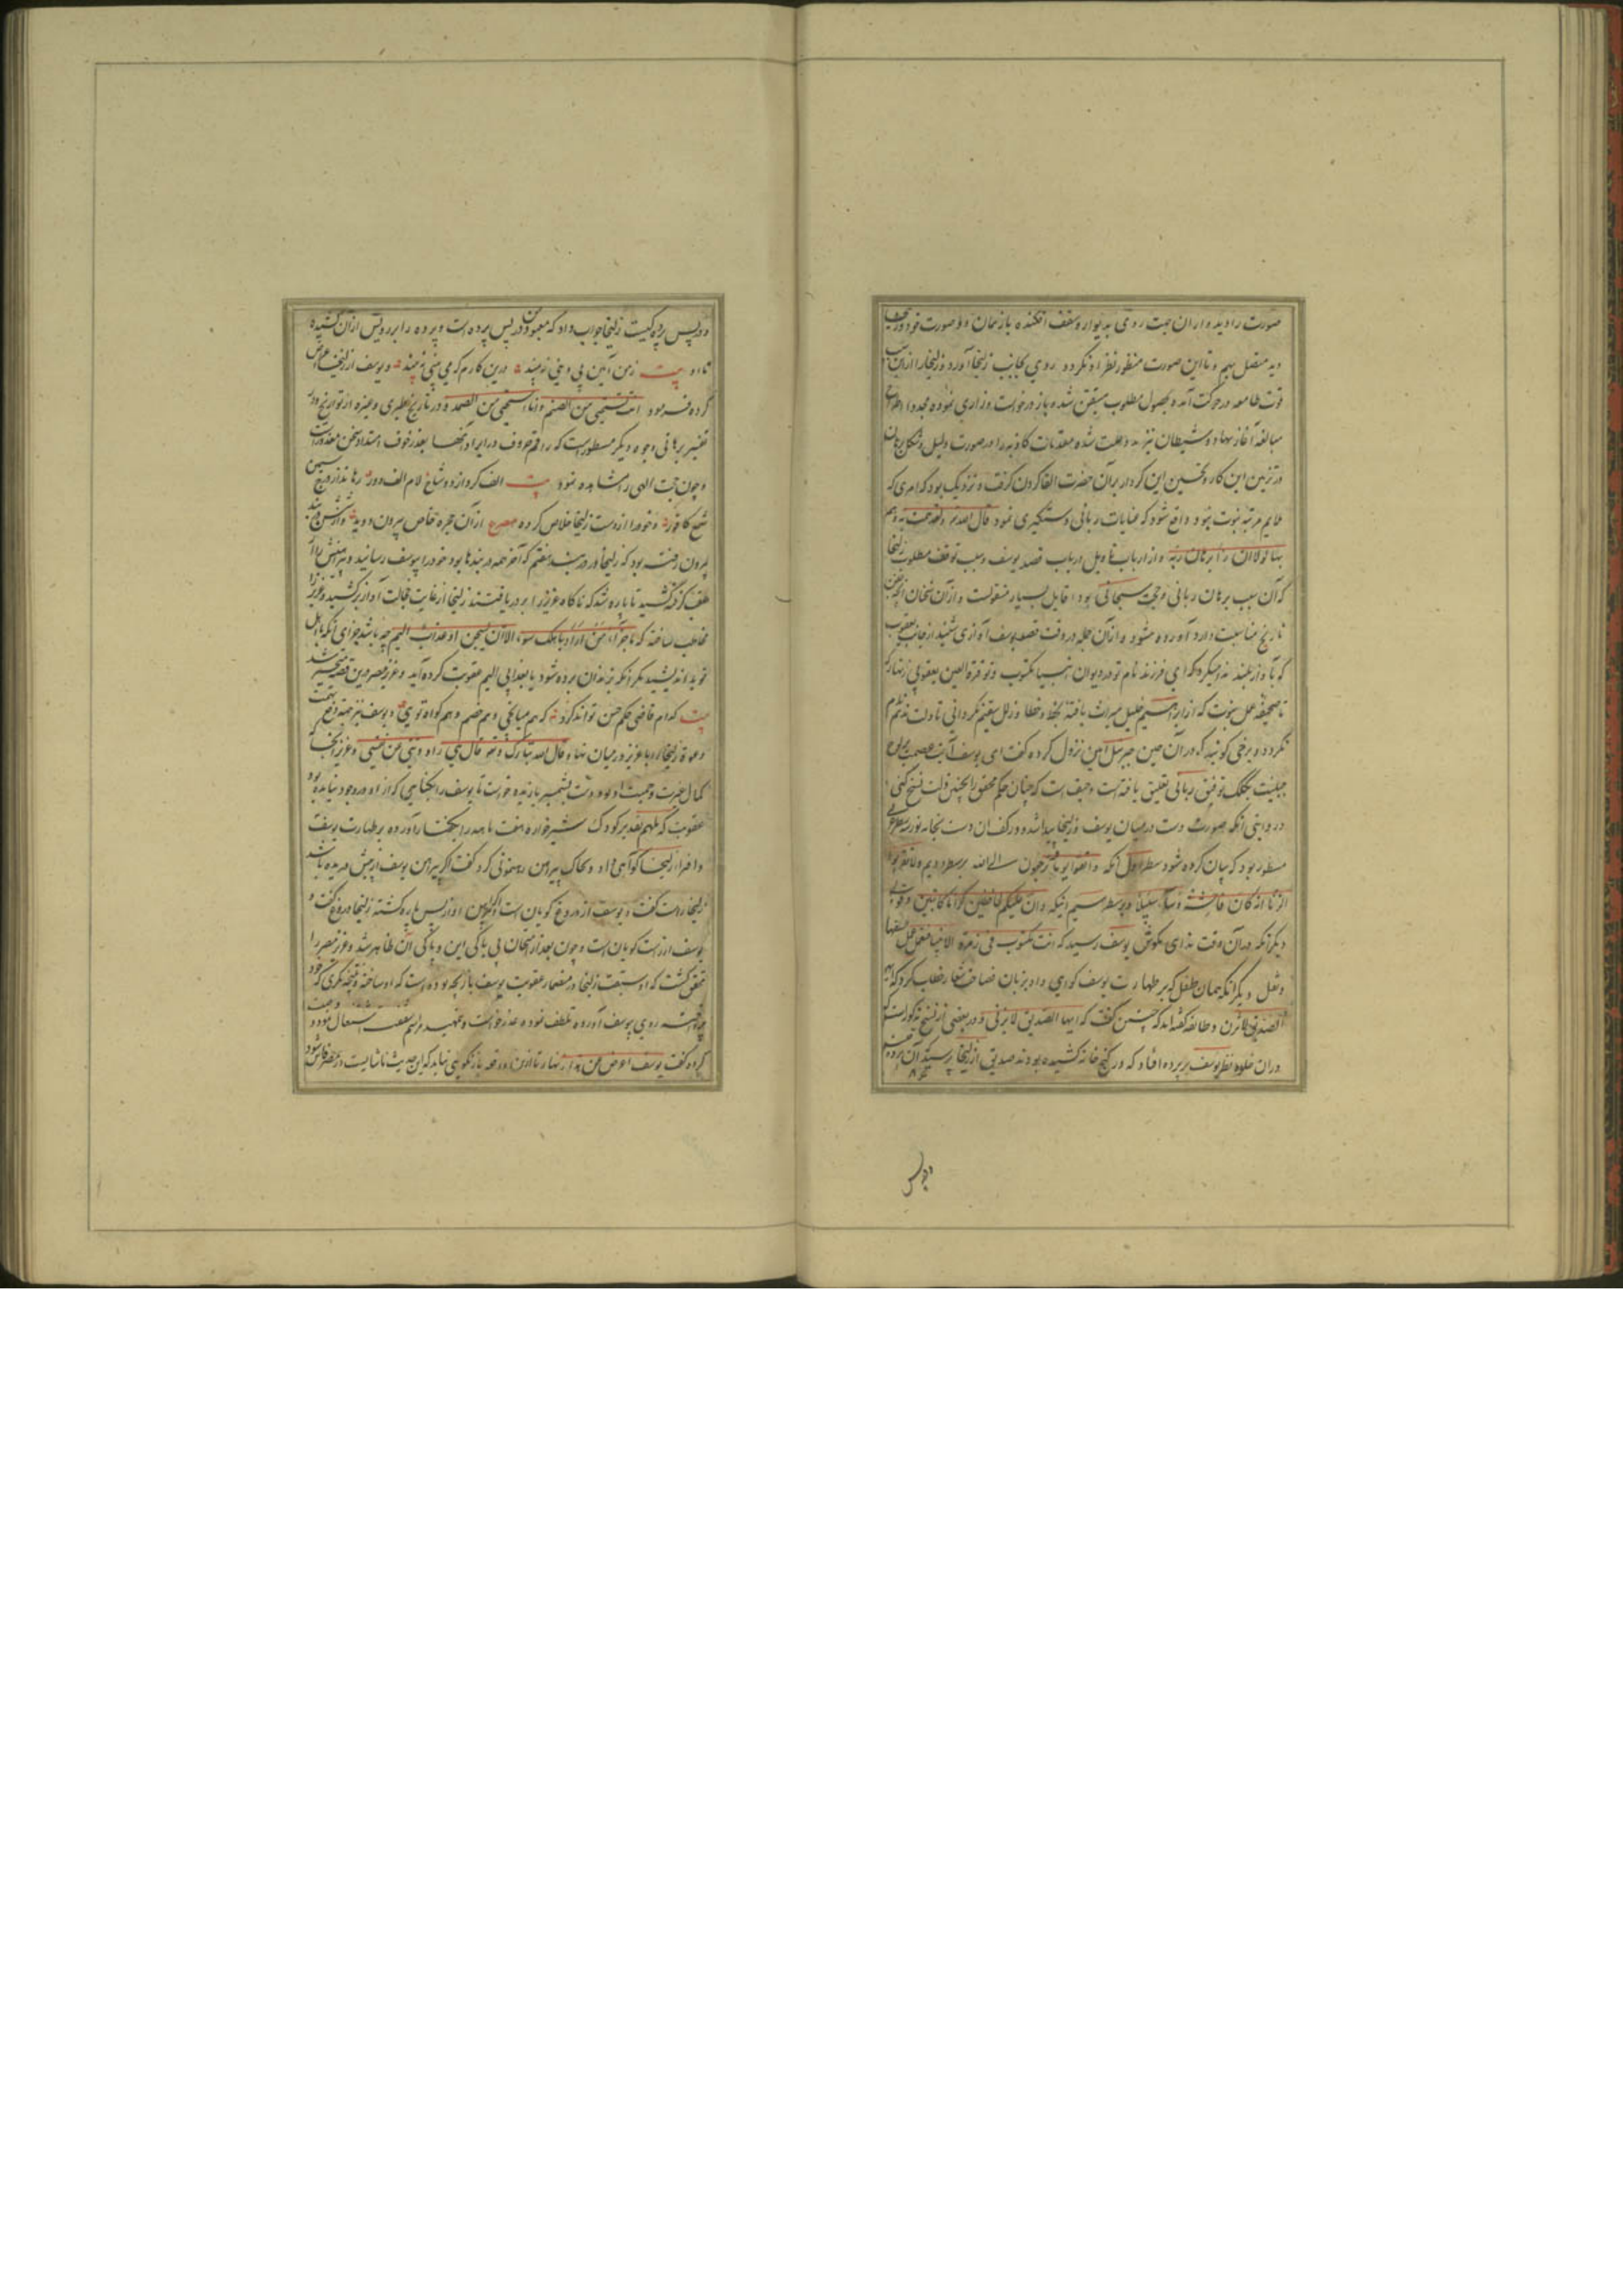 صورت را دید و از ان جهت روی بدیوار و سقف افکنده باز همان دو صورت خود و زلیخا
دید متصل بهم و تا این صورت منظور نظر او نکردد روی بجانب زلیخا آورد و زلیخا را از این
قوت طامعه در حرکت آمد و بحصول مطلوب متیقن شده باز درخواست و زاری نموده مجددا
مبالغه آغاز نهاد و شیطان نیز مدد علت شده مقدمات کاذبه را در صورت دلیل و
در تزیین این کار و تحسین این کردار بر آن حضرت القا کردن کرفت و نزدیک بود که امری که
ملایم مرتبه نبوت نبود واقع شود که عنایات ربانی دستکیری نمود قال الله تع ولقد همت به وهم
بها لولا ان رأ برهان ربه و از ارباب تاویل در باب قصد یوسف و سبب توقف مطلوب زلیخا
که آن سبب برهان ربانی و حجت سبحانی بود اقاویل بسیار منقولست و از آن سخنان آنچه
تاریخ مناسبت دارد آورده میشود و از آن جمله در وقت قصد یوسف آوازی شنید از جانب یعقوب
که بآواز بلند ندا میکرد که ای فرزند نام تو در دیوان انبیا مکتوب و تو قرة العین یعقوبی زنهار که
تا صحیفه عمل نبوت که از ابراهیم خلیل میراث یافته بخط و خطا و زلل سقیم نکردانی تا دلت
نکردد و برخی کویند که در آن حین جبرئیل امین نزول کرده کفت ای یوسف آیت عصمت
جبلیت بکلک توفیق ربانی تعلیق یافته است و حیف است که چنان حکم محقق را بچنین ذلت نسخ کنی
در روایتی آنکه صورت دست در میان یوسف و زلیخا پیدا شد و در کف ان دست سه سطر
مسطور بود که بیان کرده شود سطر اول آنکه واتقوا یوما ترجعون فیه الی الله بر سطر دویم ولا تقربوا
الزنا انه کان فاحشة وساء سبیلا و بر سطر سیم اینکه وان علیکم لحافظین کراما کاتبین و قول
دیکر آنکه در آن وقت ندای بکوش یوسف رسید که انت مکتوب فی زمرة الانبیا فتعمل عمل السفها
و نقل دیکر آنکه همان طفل که بر طهارت یوسف کواهی داد بزبان فصاحت شعار خطاب کرد که ایها
الصدیق لا تزن و طایفه کفته اند که چنین کفت که ایها الصدیق لا تزنی و در بعضی از نسخ مذکور است که
در ان خلوه نظر یوسف بر پرده افتاد که در کنج خانه کشیده بودند صدیق از زلیخا پرسید که آن پرده
در پس
و در پس پرده کیست زلیخا جواب داد که معبود من در پس پرده است و پرده را بر رویش از آن کشیده
تا او بیت زمن آیین بی دینی نبیند درین کارم که می بینی نبیند و یوسف از زلیخا اعراض
کرده فرمود انت تستحی من الصنم و انا استحیی من الصمد و در تاریخ طبری و غیره از تواریخ و در
تفسیر برهانی وجوه دیکر مسطور است که راقم حروف در ایراد آنها بعذر خوف امتداد سخن معذور است
و چون حجت الهی را مشاهده نمود بیت الف کرد از دو شاخ لام الف دور رها نداز درج سیمین
شمع کافور و خود را از دست زلیخا خلاص کرده مصرع از آن حجره خاص بیرون دوید
بیرون رفته بود که زلیخا در در بند هفتم که آخر همه در بندها بود خود را بیوسف رسانید و پیراهنش را
خلف کرفته کشید تا پاره شد که ناکاه عزیز را بر در یافتند زلیخا از غایت خجالت آواز بر کشید و عزیز را
مخاطب ساخته که ما جزآء من اراد باهلک سوء الا ان یسجن او عذاب الیم چه باشد جزای آنکه باهل
تو بد اندیشید مکر آنکه بزندان برده شود یا بعذابی الیم عقوبت کرده آید و عزیز مصر درین قضیه متحیر شد
بیت کدام قاضی حکم حسن تواند کرد که هم میانجی و هم خصم و هم کواه توی و یوسف نیز جهة دفع تهمت
دعوة زلیخا را با عزیز در میان نهاد قال الله تبارک و تع قال هی راودتنی عن نفسی و عزیز از آنجا که
کمال غیرت و حمیت او بود دست بشمشیر یازیده خواست تا یوسف را بکناهی که از او در وجود نیامده بود
عقوبت که ملهم تقدیر کودک شیرخواره هفت ماهه را بسخن در آورده بر طهارت یوسف
و افترا زلیخا کواهی داد و بچاک پیراهن رهنمونی کرد کفت اکر پیراهن یوسف از پیش دریده باشد
زلیخا راست کفت و یوسف از دروغ کویان است و اکر پیراهن او از پس پاره کشته زلیخا دروغ کفت و
یوسف از راست کویان است و چون بعد از امتحان بی باکی این و پاکی آن ظاهر شد و عزیز مصر را
محقق کشت که
روی بیوسف آورده تلطف نموده عذر خواست و
کرده کفت یوسف اعرض عن هذا زنهار تا ازین واقعه باز نکویی نباید که این حدیث ناشایست در مصر فاش شود